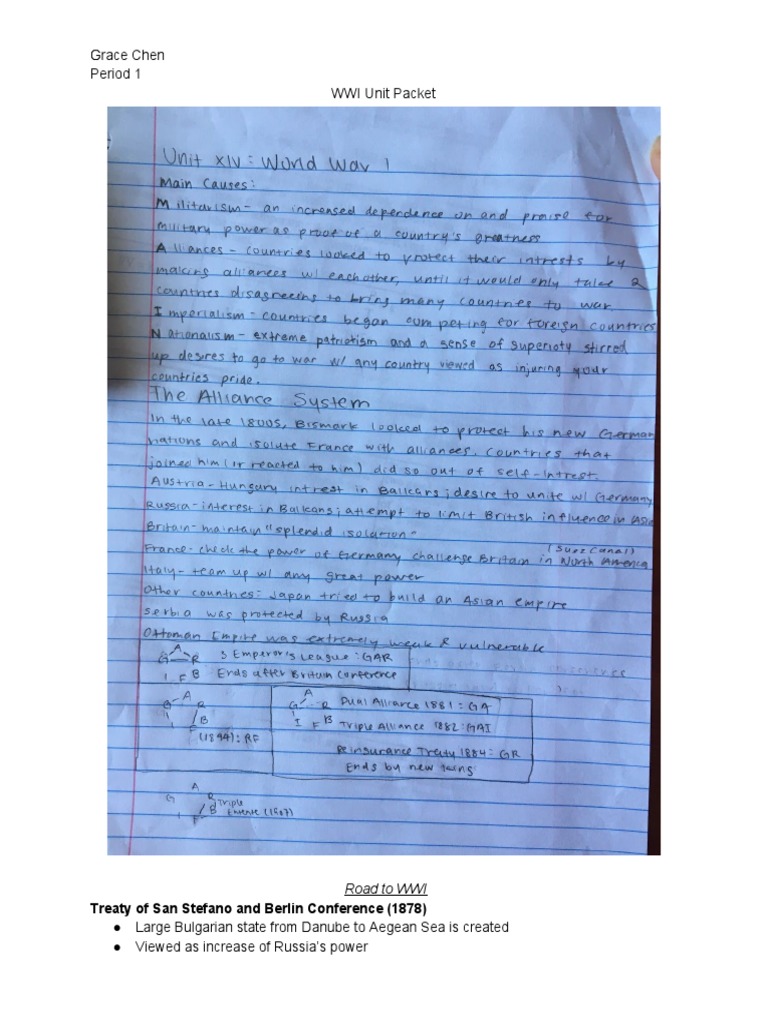 Grace Chen
Period 1
WWI Unit Packet
Unit XIV: World War 1
Main Causes:
Militarism- an increased dependence on and praise for
military power as proof of a country's greatness
Alliances - countries looked to protect their intrests by
making alliances w/ eachother, until it would only take 2
countries disagreeing to bring many countries to war.
Imperialism- countries began competing for foreign countries
Nationalism- extreme patriotism and a sense of superioty stirred
up desires to go to war w/ any country viewed as injuring your
countries pride.
The Alliance System
In the late 1800s, Bismark looked to protect his new German
nations and isolute France with alliances. Countries that
joined him (or reacted to him) did so out of self-intrest.
Austria-Hungary intrest in Balkans; desire to unite w/ Germany
Russia-interest in Balkans; attempt to limit British influence in Asia
Britain-maintain "splendid isolation"
(Suez Canal)
France- check the power of Germany challenge Britain in North America
Italy- team up w/ any great power
Other countries: Japan tried to build an Asian empire
Serbia was protected by Russia
Ottoman Empire was extremely weak & vulnerable
A
G R 3 Emperor's League: GAR
I F B Ends after Britain Conference
A
G R
I B
F
(1894): RF
A
G R Dual Alliance 1881: GA
I F B Triple Alliance 1882: GAI
Reinsurance Treaty 1884: GR
Ends by new
A
G R Triple
I B Entente (1907)
F
Road to WWI
Treaty of San Stefano and Berlin Conference (1878)
● Large Bulgarian state from Danube to Aegean Sea is created
● Viewed as increase of Russia's power